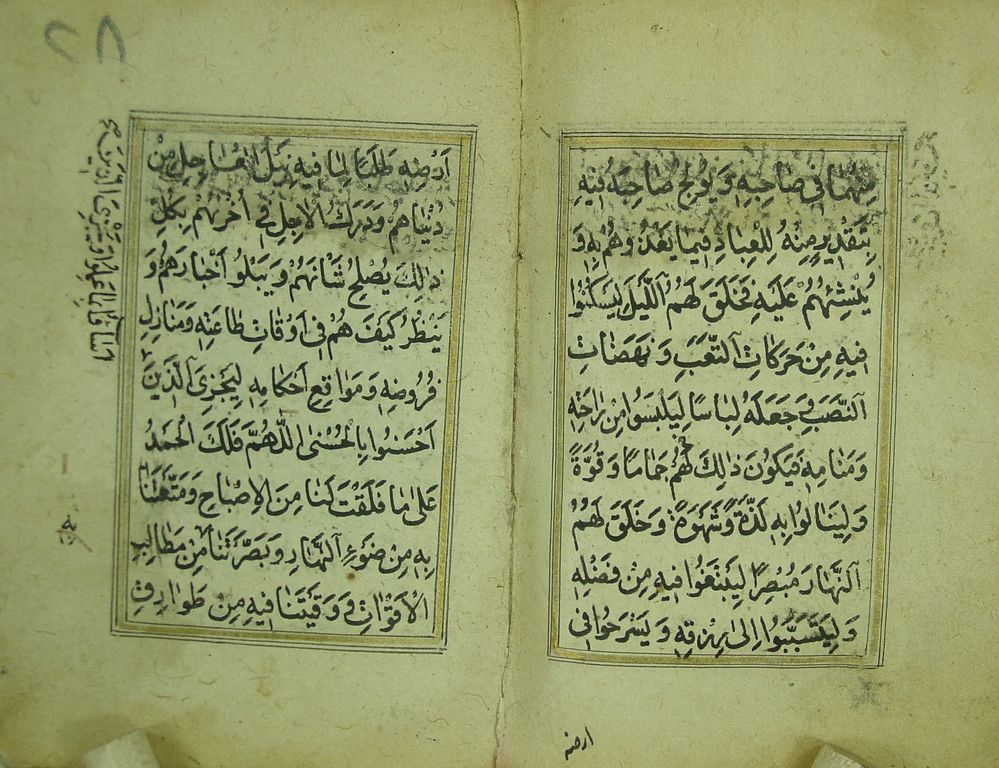 مِنْهُمَا فِي صَاحِبِهِ وَيُولِجُ صَاحِبَهُ فِيهِ
بِتَقْدِيرٍ مِنْهُ لِلْعِبَادِ فِيمَا يَغْذُوهُمْ بِهِ وَ
يُنْشِئُهُمْ عَلَيْهِ فَخَلَقَ لَهُمُ اللَّيْلَ لِيَسْكُنُوا
فِيهِ مِنْ حَرَكَاتِ التَّعَبِ وَنَهَضَاتِ
النَّصَبِ وَجَعَلَهُ لِبَاسًا لِيَلْبَسُوا مِنْ رَاحَتِهِ
وَمَنَامِهِ فَيَكُونَ ذٰلِكَ لَهُمْ جَمَامًا وَقُوَّةً
وَلِيَنَالُوا بِهِ لَذَّةً وَشَهْوَةً وَخَلَقَ لَهُمُ
النَّهَارَ مُبْصِرًا لِيَبْتَغُوا فِيهِ مِنْ فَضْلِهِ
وَلِيَتَسَبَّبُوا إِلَىٰ رِزْقِهِ وَيَسْرَحُوا فِي
ارضه
٢٨
أَرْضِهِ طَلَبًا لِمَا فِيهِ نَيْلُ الْعَاجِلِ مِنْ
دُنْيَاهُمْ وَدَرَكُ الْآجِلِ فِي أُخْرَيهُمْ بِكُلِّ
ذٰلِكَ يُصْلِحُ شَأْنَهُمْ وَيَبْلُو أَخْبَارَهُمْ وَ
يَنْظُرُ كَيْفَ هُمْ فِي أَوْقَاتِ طَاعَتِهِ وَمَنَازِلِ
فُرُوضِهِ وَمَوَاقِعِ أَحْكَامِهِ لِيَجْزِيَ الَّذِينَ
أَحْسَنُوا بِالْحُسْنَى اللّٰهُمَّ فَلَكَ الْحَمْدُ
عَلَىٰ مَا فَلَقْتَ لَنَا مِنَ الْإِصْبَاحِ وَمَتَّعْتَنَا
بِهِ مِنْ ضَوْءِ النَّهَارِ وَبَصَّرْتَنَا مِنْ مَطَالِبِ
الْأَقْوَاتِ وَوَقَيْتَنَا فِيهِ مِنْ طَوَارِقِ